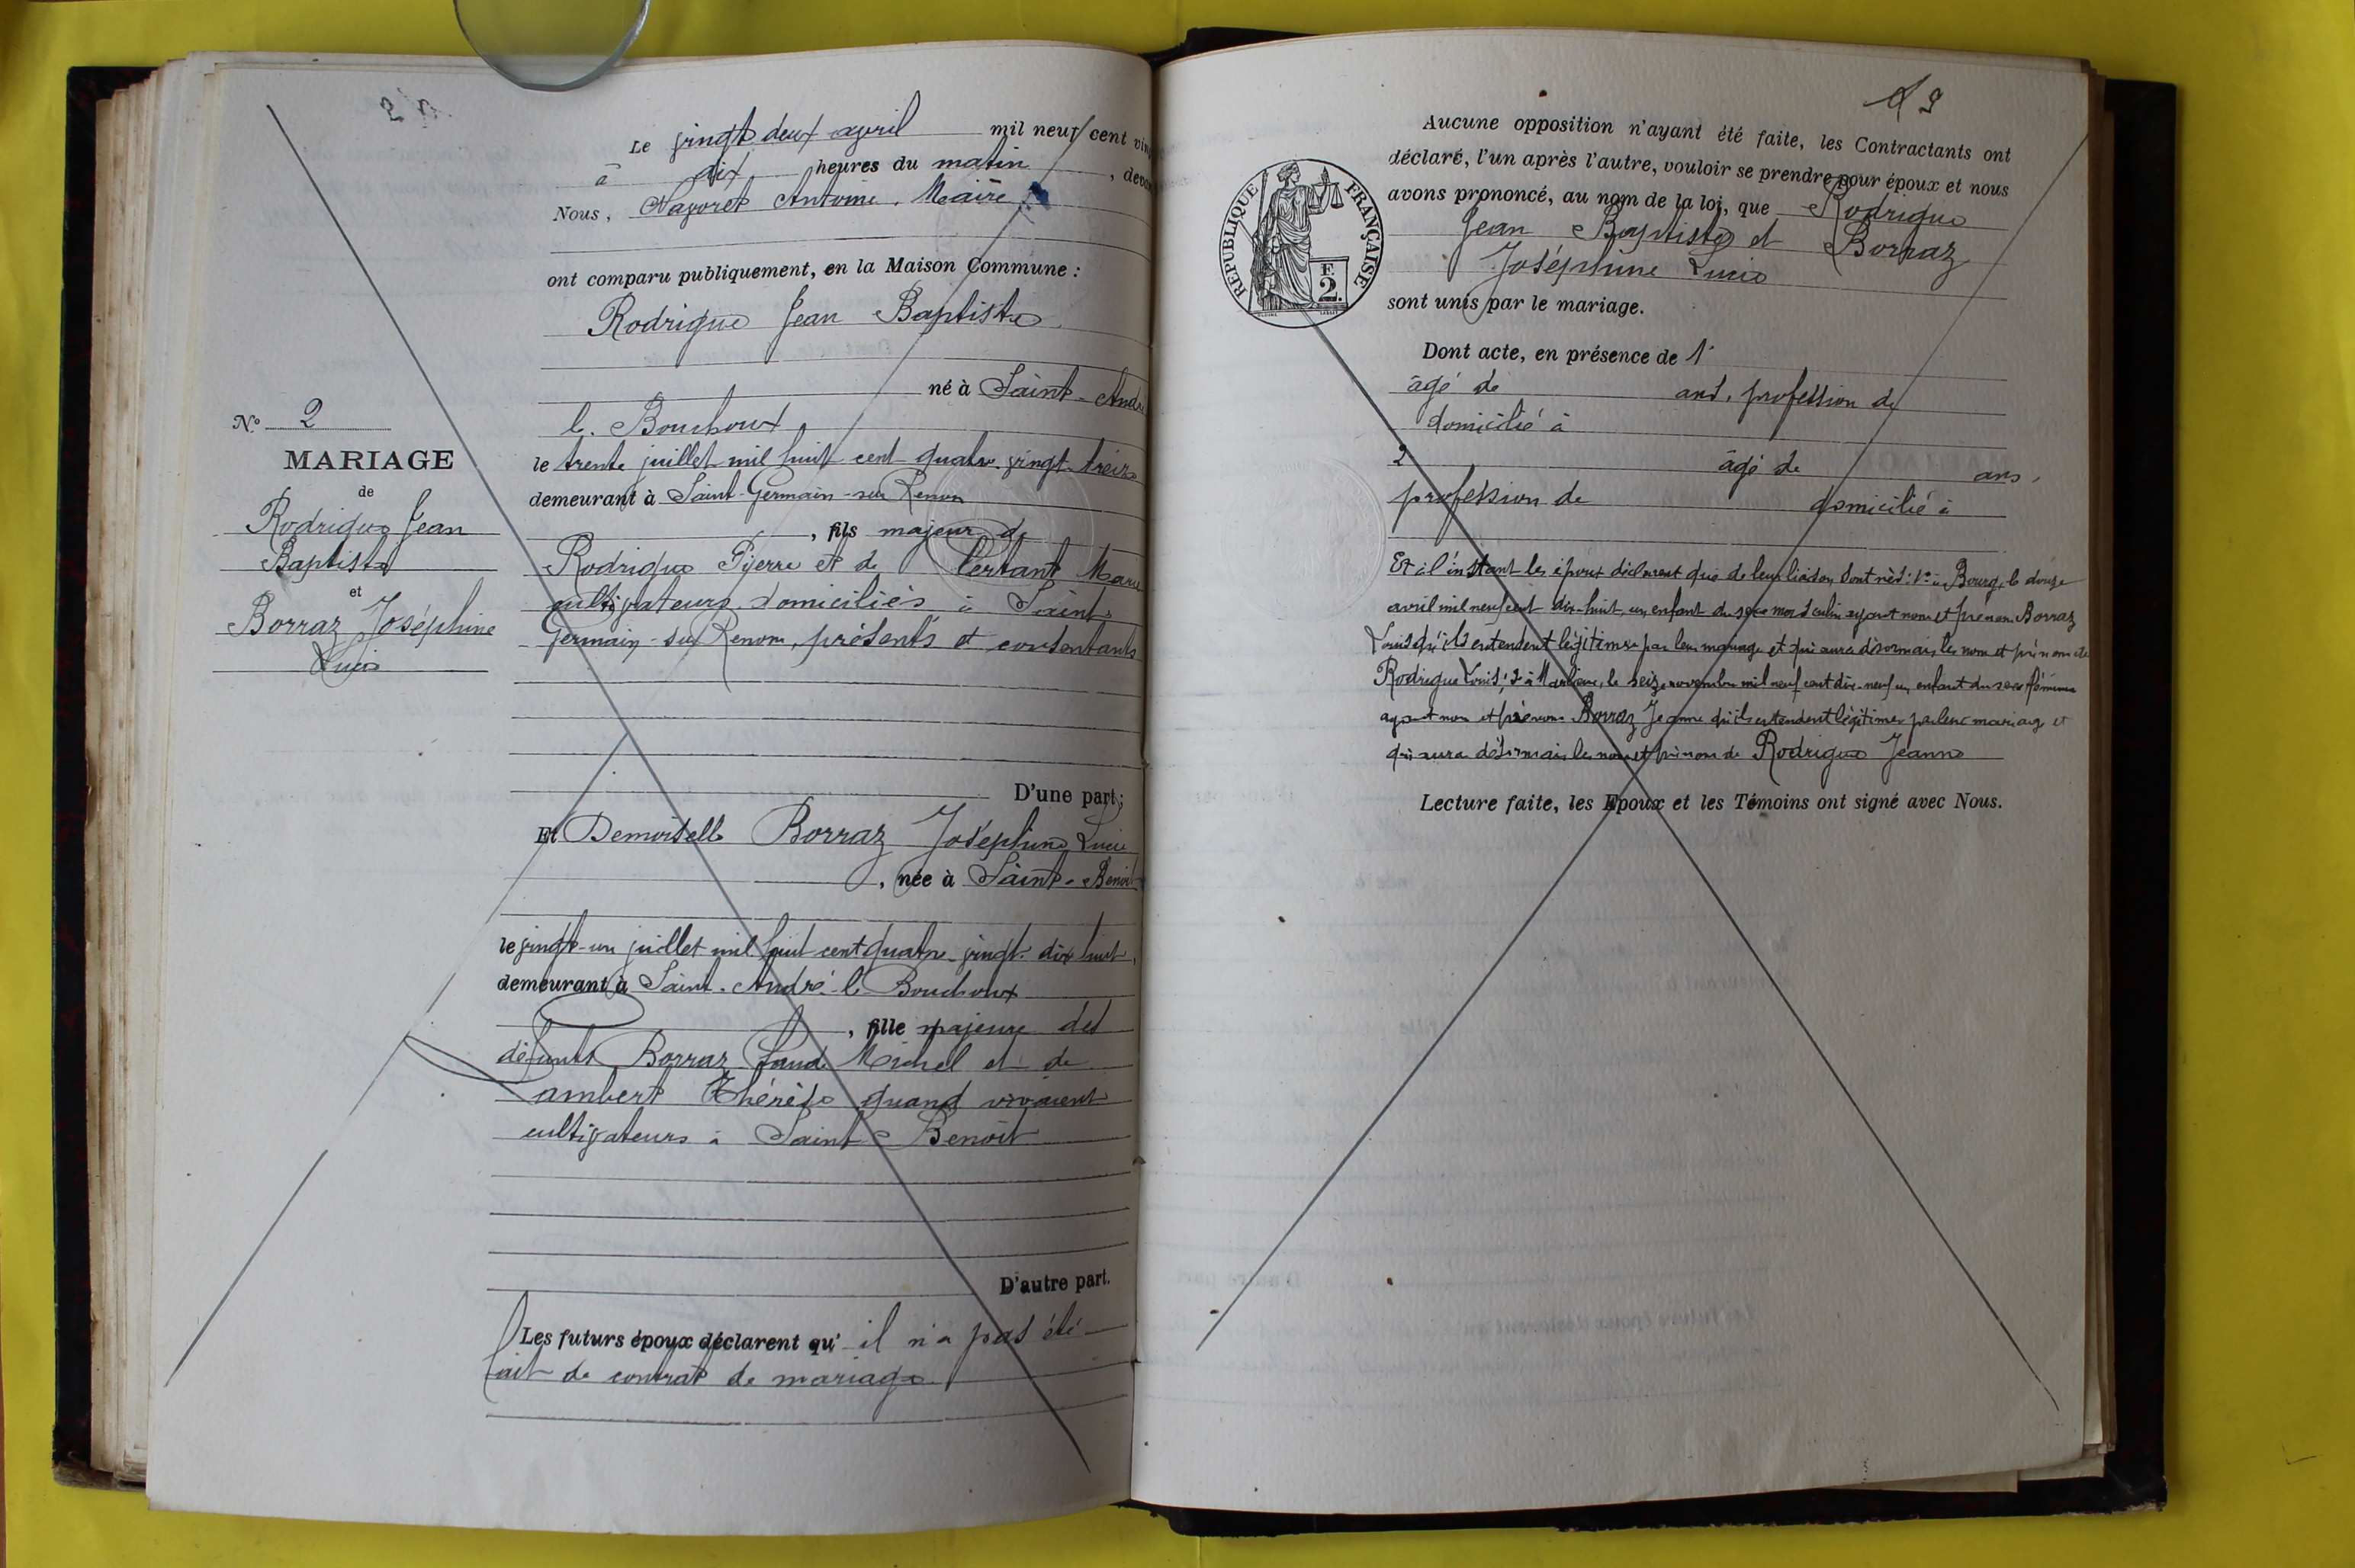 Le vingt deux avril mil neuf cent vin
à dix heures du matin, devan
Nous, Nayoret Antoine, Maire
ont comparu publiquement, en la Maison Commune :
Rodrigue Jean Baptiste
né à Saint-André
le Bouchoux
le trente juillet mil huit cent quatre-vingt-treize
demeurant à Saint-Germain-sur Renon
, fils majeur de
Rodrigue Pierre et de Pertant Marie
cultivateurs domiciliés à Saint
Germain-sur Renom, présents et consentants
D'une part;
Nº 2
MARIAGE
de
Rodrigue Jean
Baptiste
et
Borraz Joséphine
Lucie
Et Demoiselle Borraz Joséphine Lucie
, née à Saint-Benoit
le vingt-un juillet mil huit cent quatre-vingt-dix huit,
demeurant à Saint-André-le Bouchoux
, fille majeure des
défunts Borraz Michel et de
Lambert Thérèse quand vivaient
cultivateurs à Saint-Benoît
D'autre part.
Les futurs époux déclarent qu'il n'a pas été
fait de contrat de mariage
19
Aucune opposition n'ayant été faite, les Contractants ont
déclaré, l'un après l'autre, vouloir se prendre pour époux et nous
avons prononcé, au nom de la loi, que Rodrigue
Jean Baptiste et Borraz
Joséphine Lucie
sont unis par le mariage.
RÉPUBLIQUE FRANÇAISE
F.
2.
Dont acte, en présence de 1º
âgé de ans, profession de
domicilié à
2 âgé de ans,
profession de domicilié à
Et à l'instant les époux déclarent que de leur liaison sont nés : 1º à Bourg, le douze
avril mil neuf cent dix-huit, un enfant du sexe masculin ayant nom et prénom Borraz
Louis qu'ils entendent légitimer par leur mariage et qui aura désormais les nom et prénom de
Rodrigue Louis; 2º à Marlieux, le seize novembre mil neuf cent dix-neuf un enfant du sexe féminin
ayant nom et prénom Borraz Jeanne qu'ils entendent légitimer par leur mariage et
qui aura désormais les nom et prénom de Rodrigue Jeanne
Lecture faite, les Epoux et les Témoins ont signé avec Nous.